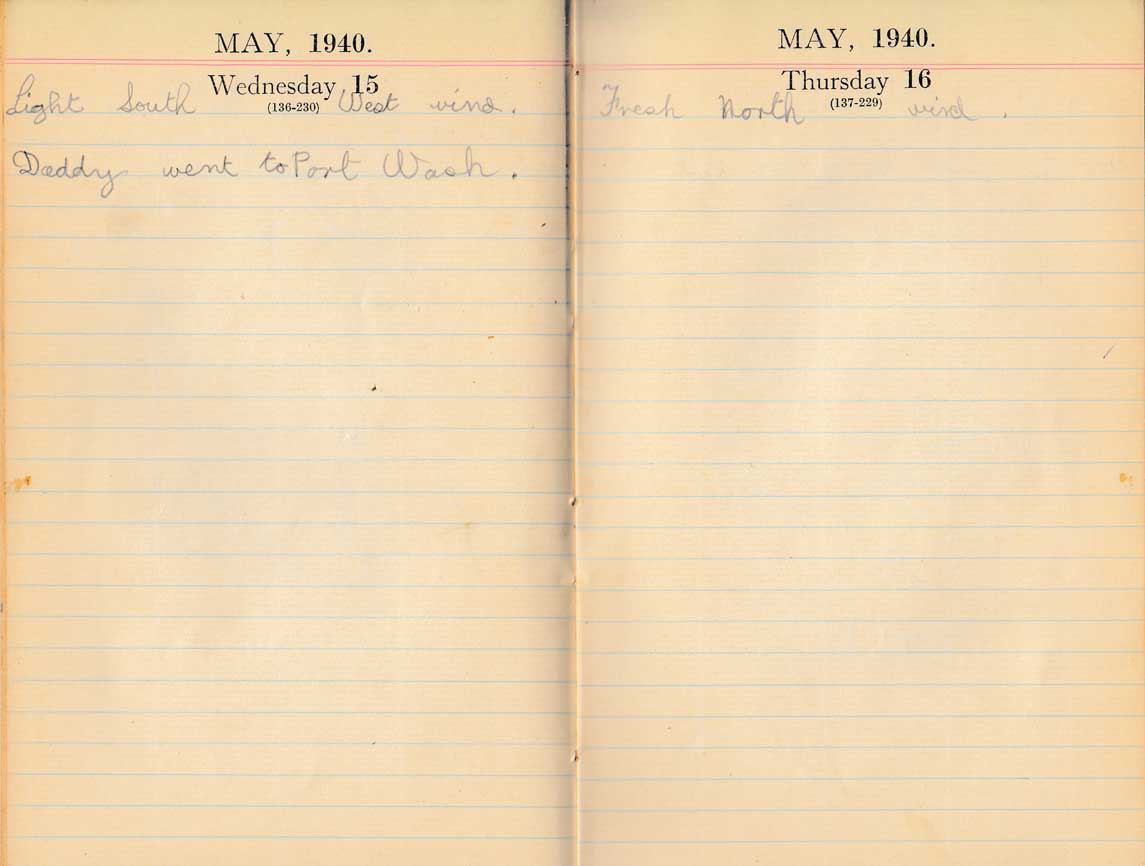 MAY, 1940.
Wednesday 15
(136-230)
Light South West wind.
Daddy went to Port Wash.
MAY, 1940.
Thursday 16
(137-229)
Fresh North wind.